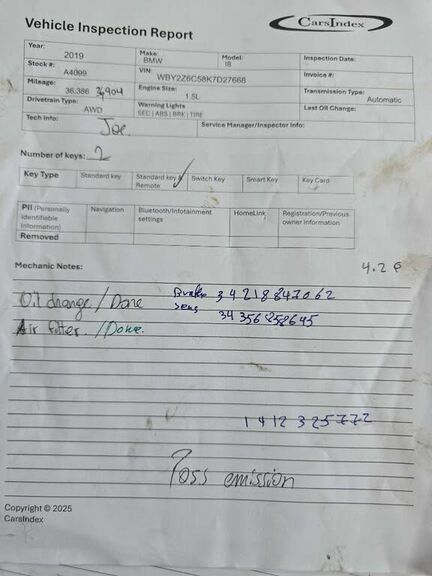 Vehicle Inspection Report
CarsIndex
Year: 2019 Make: BMW Model: I8 Inspection Date:
Stock #: A4099 VIN: WBY2Z6C58K7D27668 Invoice #:
Mileage: 36.386 36,904 Engine Size: 1.5L Transmission Type: Automatic
Drivetrain Type: AWD Warning Lights SEC | ABS | BRK | TIRE Last Oil Change:
Tech Info: Joe Service Manager/Inspector Info:
Number of keys: 2
Key Type Standard key Standard key Remote Switch Key Smart Key Key Card
PII (Personally Identifiable Information) Navigation Bluetooth/Infotainment settings HomeLink Registration/Previous owner Information
Removed
Mechanic Notes:
4.2
Oil change / Done Brake 3 4 2 1 8 8 4 7 0 6 2
Air filter. / Done. sens 34 356 858645
1 4 1 2 3 2 5 7 7 2
Pass emission
Copyright © 2025
CarsIndex